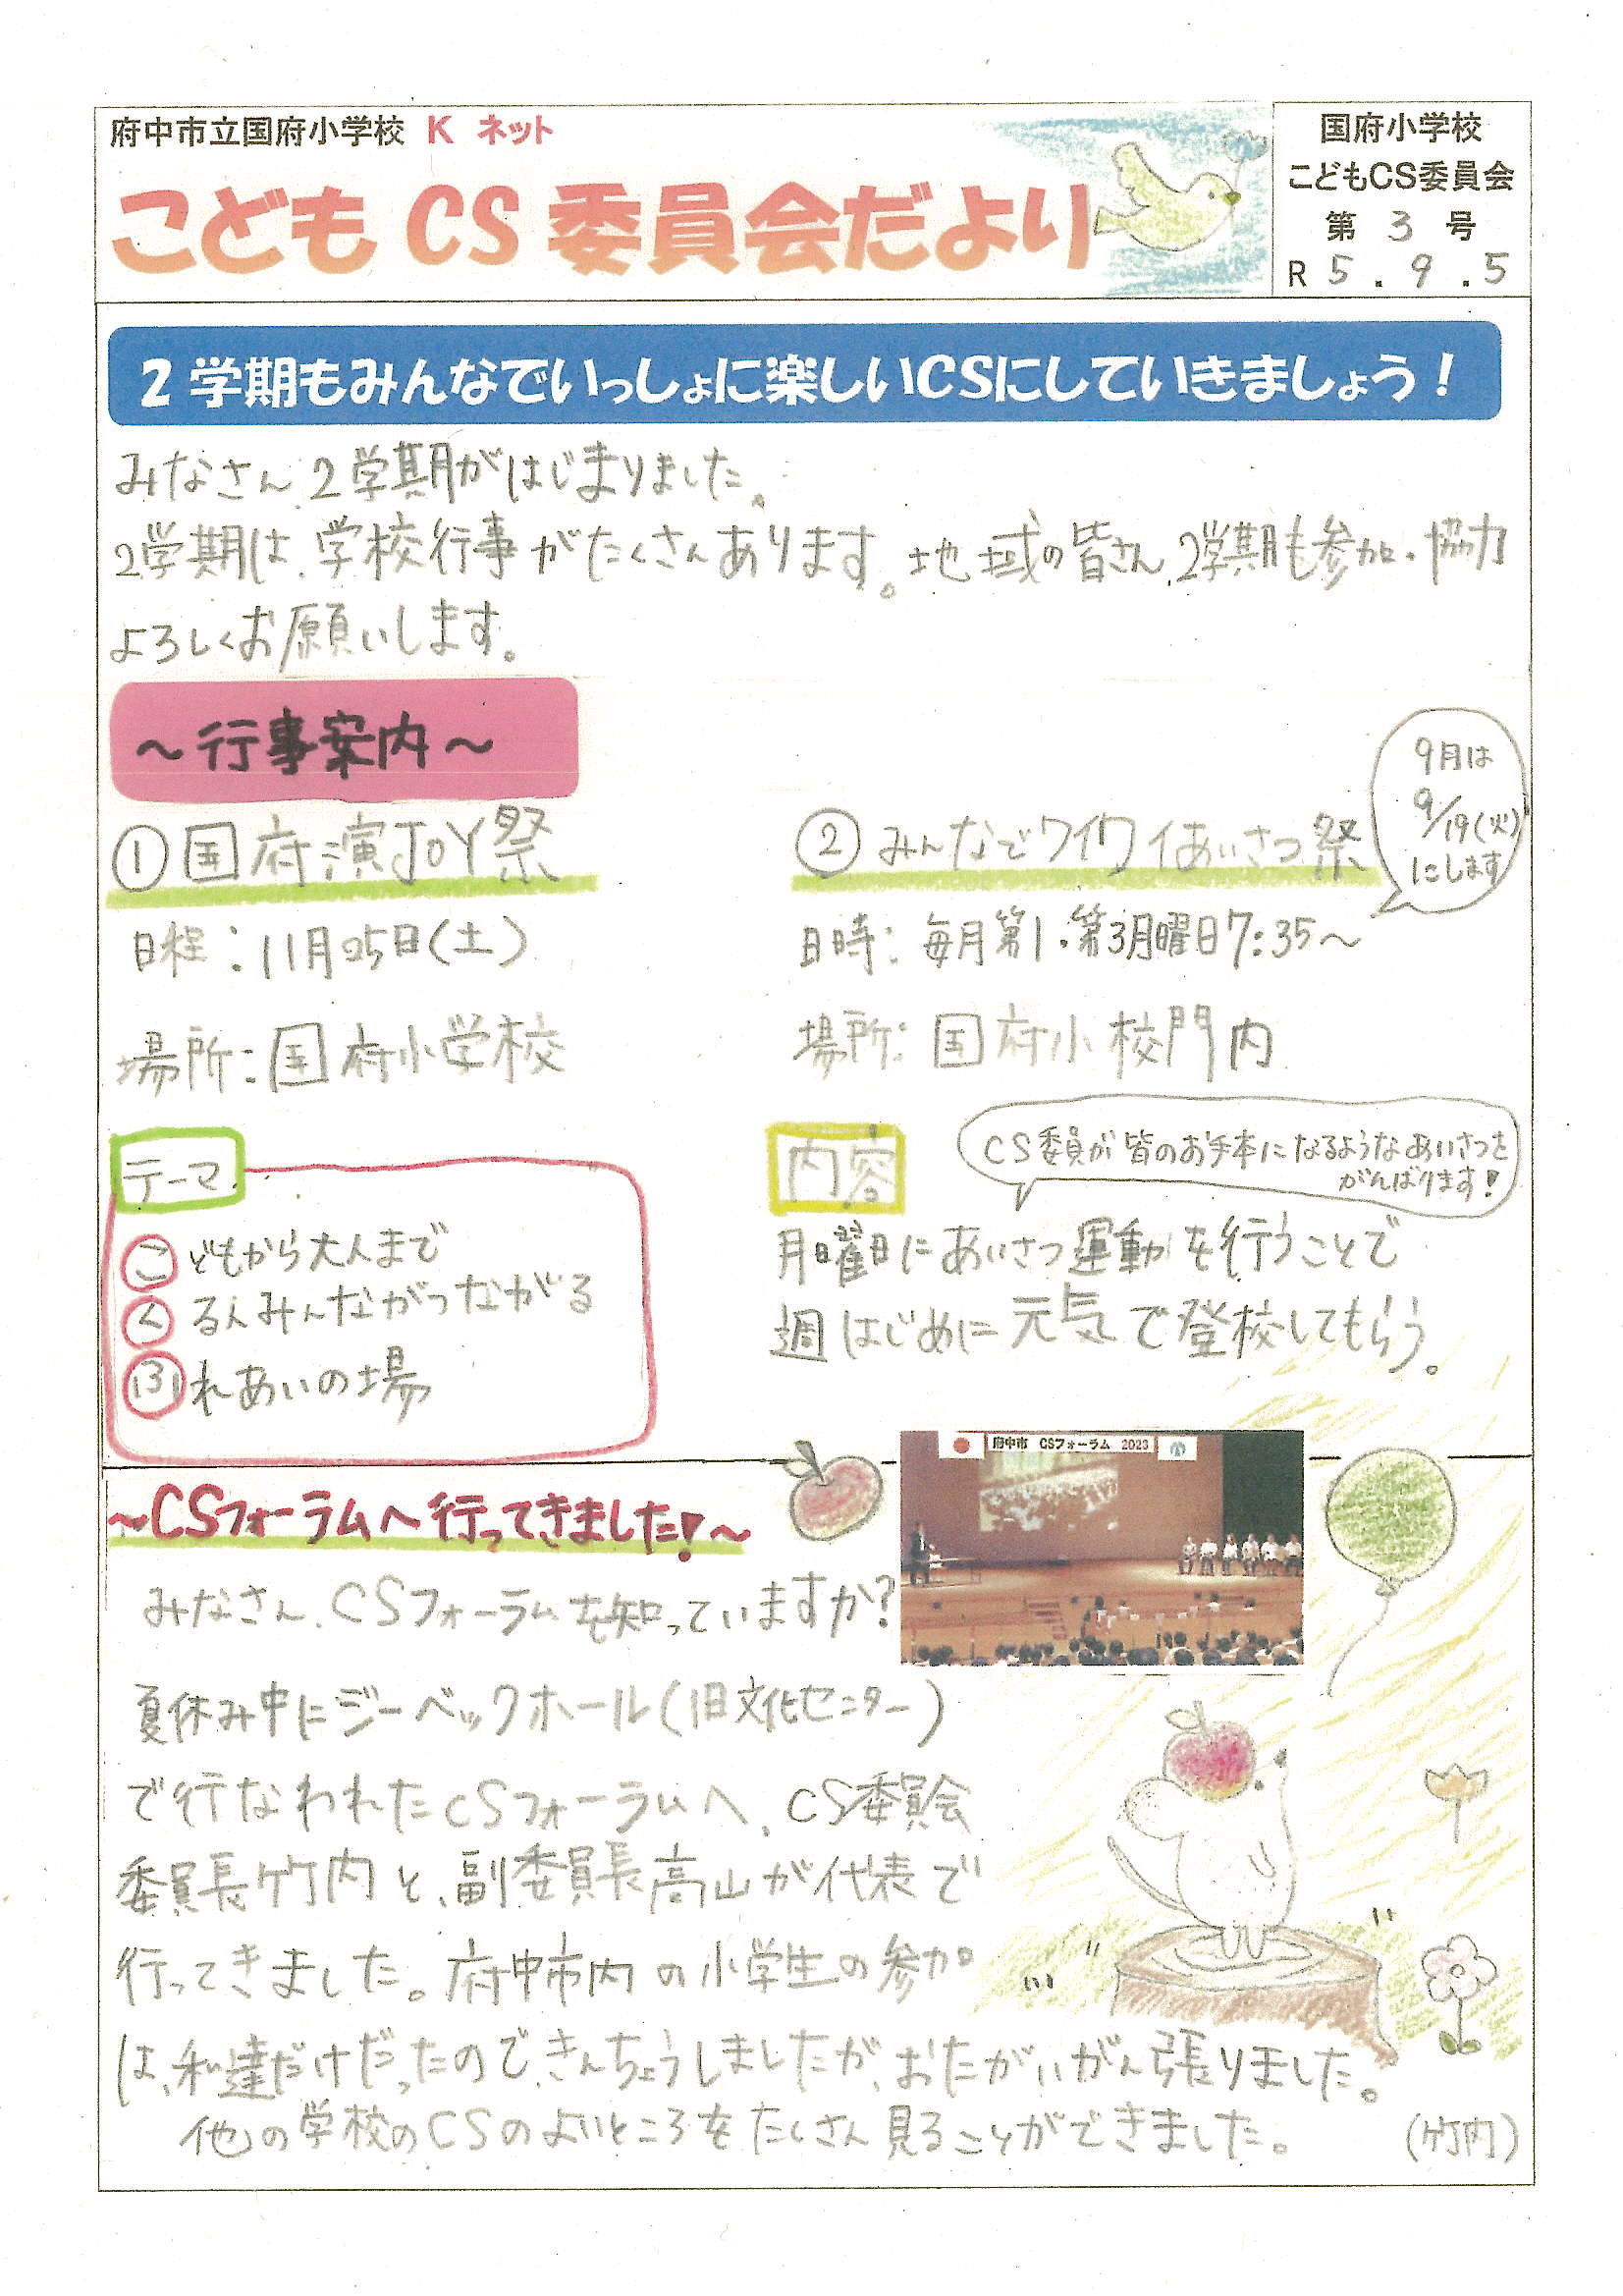 府中市立国府小学校 K ネット
こども CS 委員会だより
国府小学校
こどもCS委員会
第 3 号
R 5 . 9 . 5
2 学期もみんなでいっしょに楽しいCSにしていきましょう！
みなさん、2学期がはじまりました。
2学期は、学校行事がたくさんあります。地域の皆さん、2学期も参加・協力
よろしくお願いします。
～行事案内～
① 国府演JOY祭
日程：11月25日(土)
場所：国府小学校
テーマ
こどもから大人まで
くる人みんながつながる
ふれあいの場
② みんなでワイワイあいさつ祭
9月は
9/19(火)
にします
日時：毎月第1・第3月曜日7:35～
場所：国府小校門内
内容
CS委員が皆のお手本になるようなあいさつを
がんばります！
月曜日にあいさつ運動を行うことで
週はじめに元気で登校してもらう。
～CSフォーラムへ行ってきました！～
府中市 CSフォーラム 2023
みなさん、CSフォーラムを知っていますか？
夏休み中にジーベックホール(旧文化センター)
で行なわれたCSフォーラムへ、CS委員会
委員長竹内と、副委員長高山が代表で
行ってきました。府中市内の小学生の参加
は、私達だけだったので、きんちょうしましたが、おたがいがん張りました。
他の学校のCSのよいところをたくさん見ることができました。 (竹内)